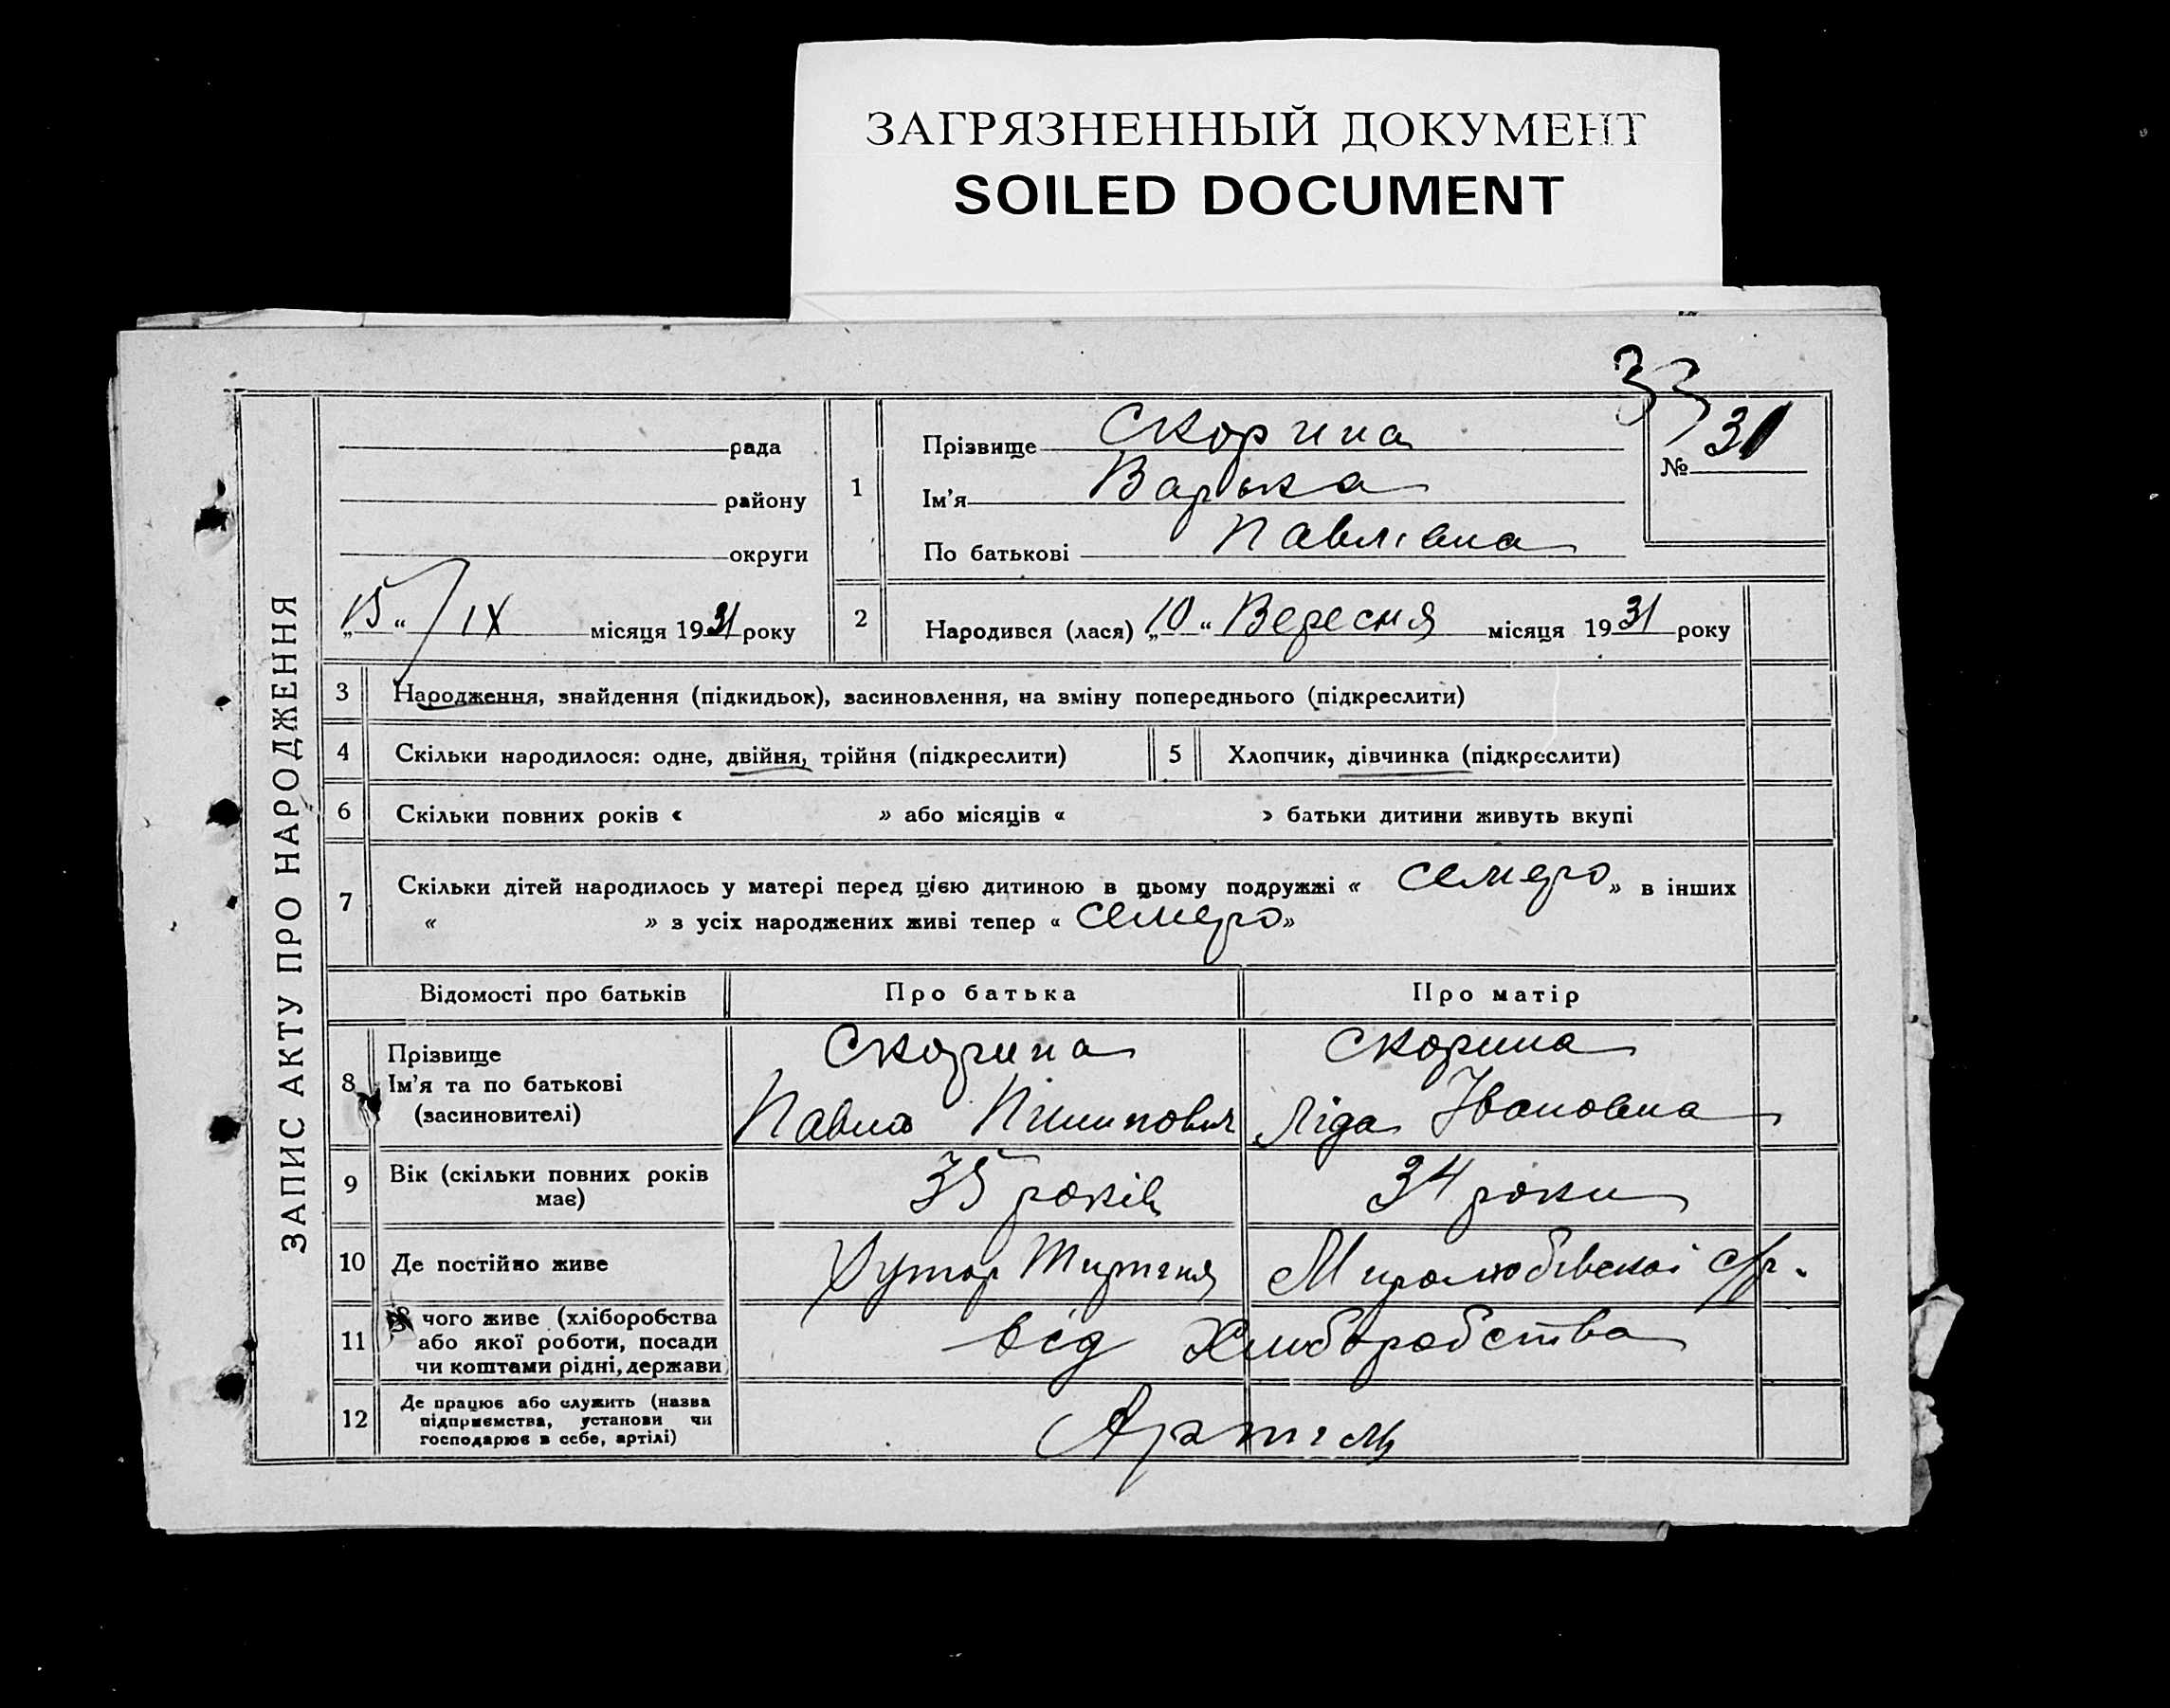 ЗАГРЯЗНЕННЫЙ ДОКУМЕНТ
SOILED DOCUMENT
33
ЗАПИС АКТУ ПРО НАРОДЖЕННЯ
рада
району
округи
„15“ / IX місяця 1931 року
1
Прізвище Скорина
Ім'я Варька
По батькові Павлівна
№ 31
2 Народився (лася) „10“ Вересня місяця 1931 року
3 Народження, знайдення (підкидьок), засиновлення, на зміну попереднього (підкреслити)
4 Скільки народилося: одне, двійня, трійня (підкреслити) 5 Хлопчик, дівчинка (підкреслити)
6 Скільки повних років « » або місяців « » батьки дитини живуть вкупі
7 Скільки дітей народилось у матері перед цією дитиною в цьому подружжі « семеро » в інших
« » з усіх народжених живі тепер « семеро »
Відомості про батьків Про батька Про матір
8 Прізвище Скорина Скорина
Ім'я та по батькові
(засиновителі) Павло Пилипович Ліда Івановна
9 Вік (скільки повних років має) 35 років 34 роки
10 Де постійно живе Хутор Миролюбівської с/р.
11 З чого живе (хліборобства
або якої роботи, посади
чи коштами рідні, держави від Хліборобства
12 Де працює або служить (назва
підприємства, установи чи
господарює в себе, артілі) Артіль